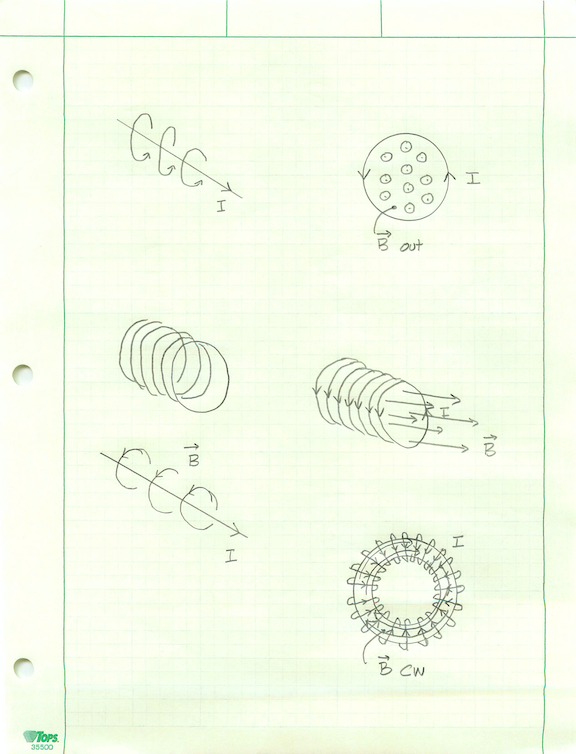 I
I
B out
I
B
B
I
I
B CW
TOPS
35500